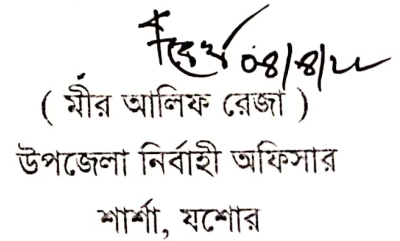 ০৪/৪/২২
( মীর আলিফ রেজা )
উপজেলা নির্বাহী অফিসার
শার্শা, যশোর